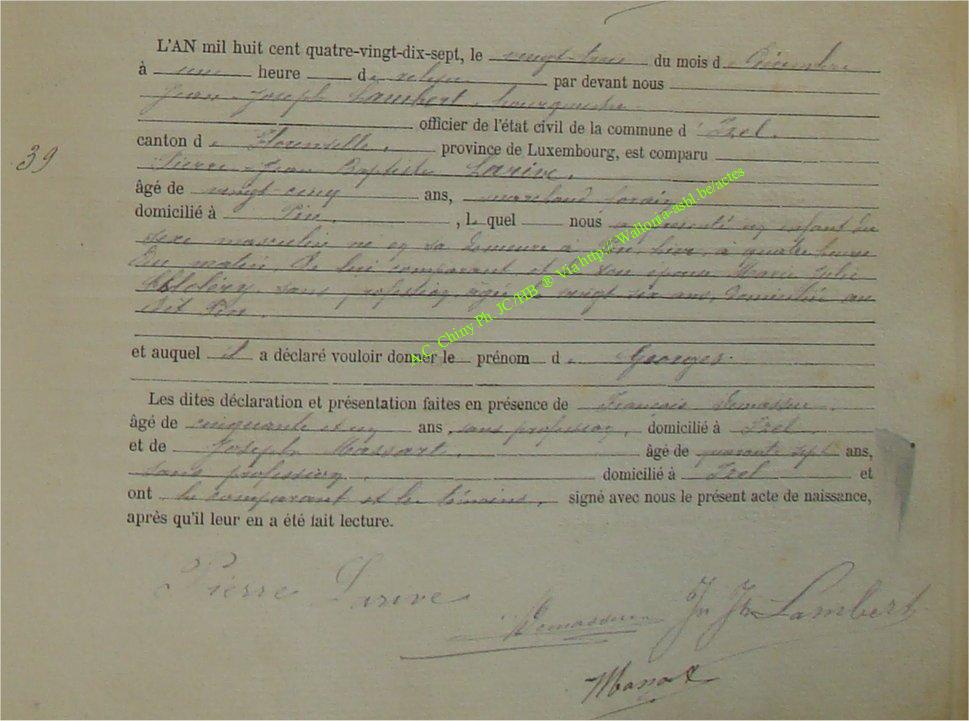 L'AN mil huit cent quatre-vingt-dix-sept, le vingt-trois du mois d e Décembre
à une heure d e relevée par devant nous
Jean-Joseph Lambert, bourgmestre
officier de l'état civil de la commune d 'Izel.
39
canton d e Florenville, province de Luxembourg, est comparu
Pierre-Jean Baptiste Larive,
âgé de vingt cinq ans, marchand forain
domicilié à Pin, , L quel nous a présenté un enfant du
sexe masculin né en sa demeure à Pin, hier, à quatre heures
du matin, de lui comparant et de son épouse Marie Julie
sans profession, âgée de vingt six ans, domiciliée au
dit Pin.
et auquel il a déclaré vouloir donner le prénom d e Georges.
Les dites déclaration et présentation faites en présence de François Demasseu,
âgé de cinquante et un ans, sans profession, domicilié à Izel.
et de Joseph Massart. âgé de quarante sept ans,
sans profession domicilié à Izel et
ont le comparant et les témoins, signé avec nous le présent acte de naissance,
après qu'il leur en a été fait lecture.
Pierre Larive
Jn Jh Lambert
A.C. Chiny Ph. JC/HB ® Via http://Wallonia-asbl.be/actes